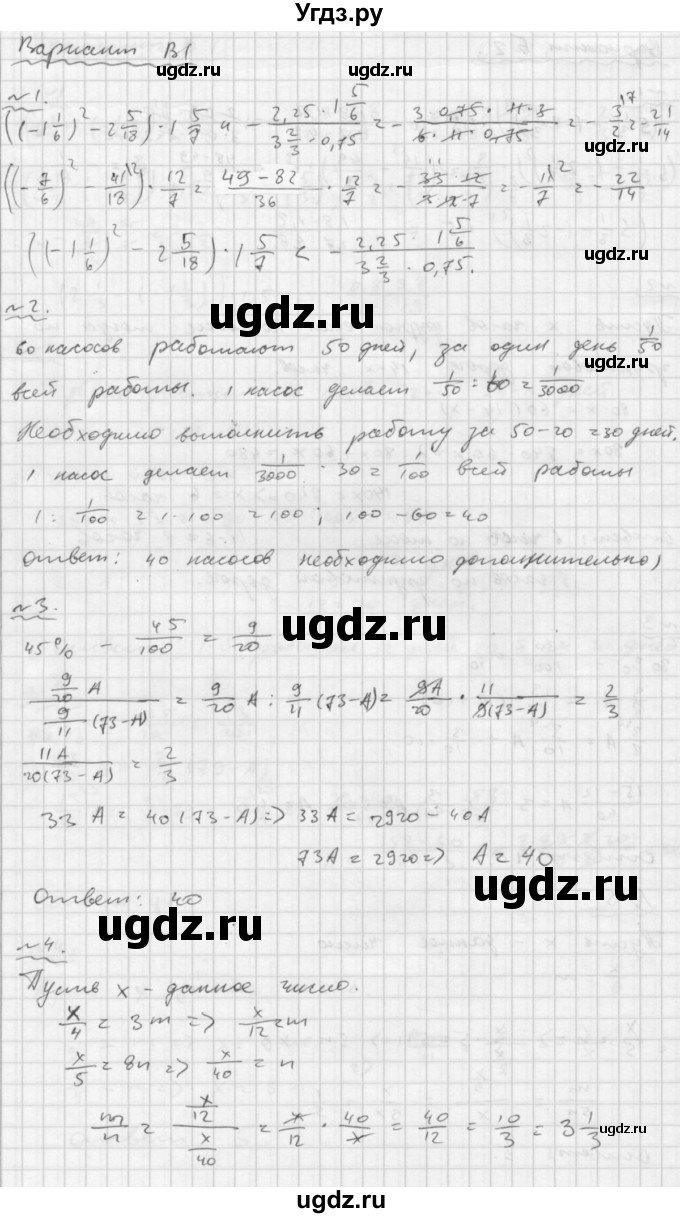 Угдз.ру
Вариант В1
ugdz.ru
ugdz.ru
№1.
((-1 1/6)² - 2 5/18) · 1 5/7 и - (2,25 · 1 5/6)/(3 2/3 · 0,75) = - (3 · 0,75 · 11 · 3)/(6 · 11 · 0,75) = - 3/2 = - 21/14
ugdz.ru
((-7/6)² - 41/18) · 12/7 = (49 - 82)/36 · 12/7 = - (33 · 12)/(36 · 7) = - 11/7 = - 22/14
((-1 1/6)² - 2 5/18) · 1 5/7 < - (2,25 · 1 5/6)/(3 2/3 · 0,75).
ugdz.ru
№2.
ugdz.ru
60 насосов работают 50 дней, за один день 1/50
ugdz.ru
всей работы. 1 насос делает 1/50 : 60 = 1/3000
Необходимо выполнить работу за 50-20 = 30 дней.
1 насос делает 1/3000 · 30 = 1/100 всей работы
ugdz.ru
1 : 1/100 = 1 · 100 = 100; 100 - 60 = 40
Ответ: 40 насосов необходимо дополнительно)
№3.
ugdz.ru
45% - 45/100 = 9/20
ugdz.ru
(9/20 A)/(9/11 (73-A)) = 9/20 A : 9/11 (73-A) = 9A/20 · 11/(9(73-A)) = 2/3
11A/(20(73-A)) = 2/3
33 A = 40(73-A) => 33A = 2920 - 40A
73A = 2920 => A = 40
ugdz.ru
Ответ: 40
ugdz.ru
№4.
Пусть x - данное число.
x/4 = 3m => x/12 = m
ugdz.ru
x/5 = 8n => x/40 = n
m/n = (x/12)/(x/40) = x/12 · 40/x = 40/12 = 10/3 = 3 1/3
ugdz.ru
ugdz.ru
ugdz.ru